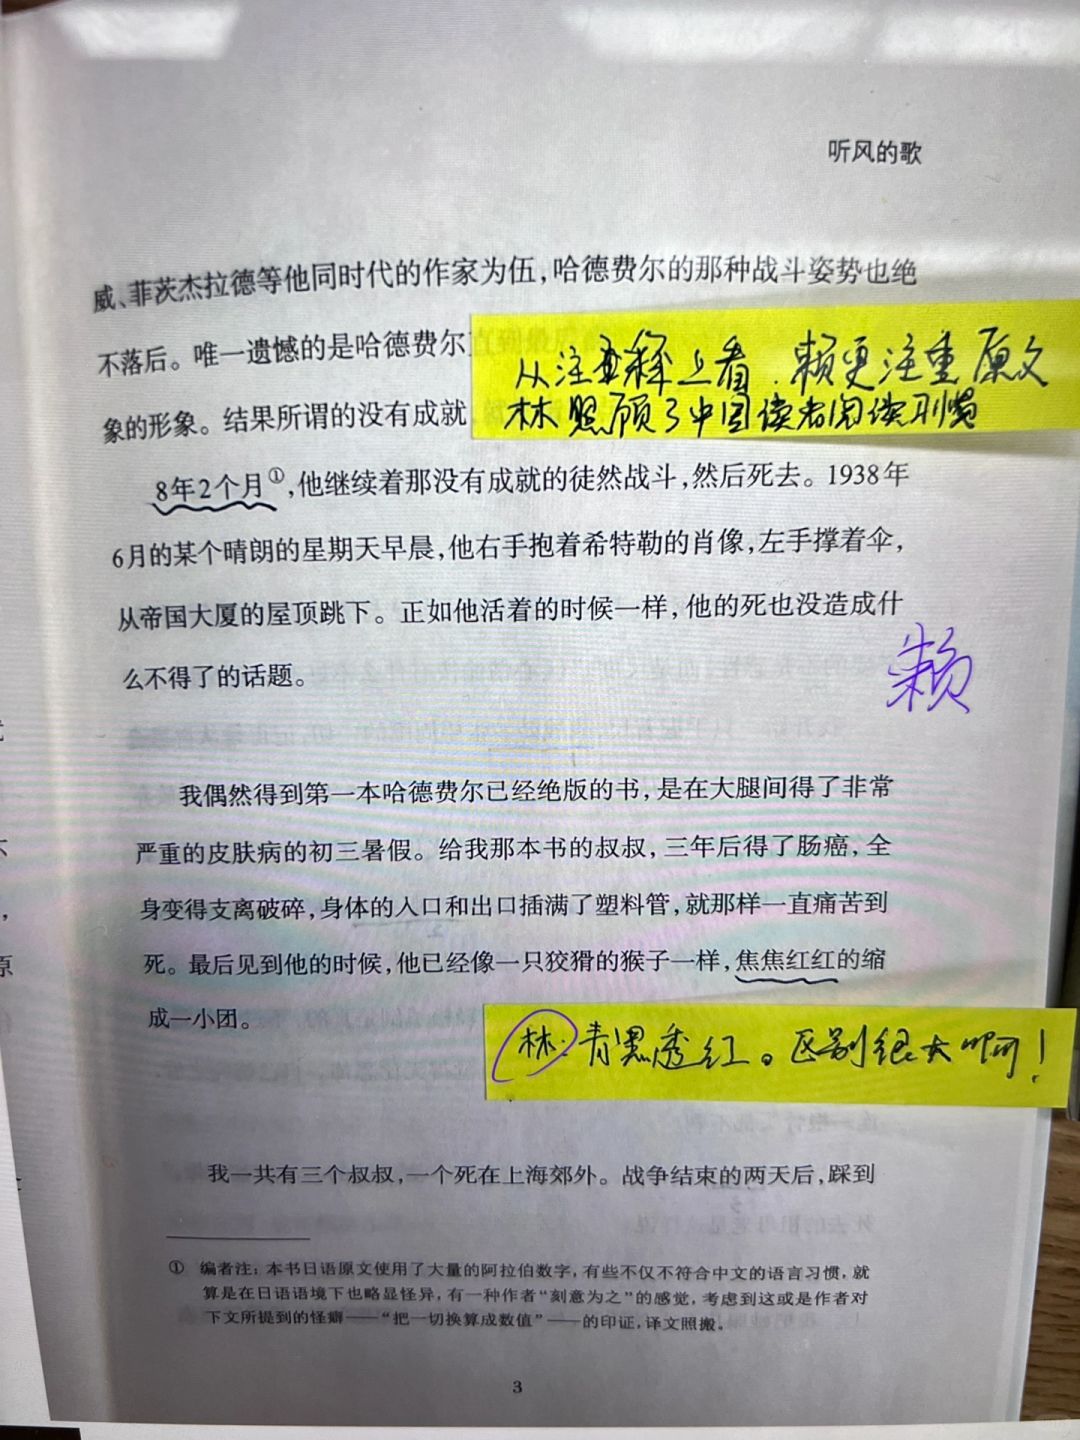 听风的歌
威、菲茨杰拉德等他同时代的作家为伍，哈德费尔的那种战斗姿势也绝
不落后。唯一遗憾的是哈德费尔
从注释上看，赖更注重原文
象的形象。结果所谓的没有成就
林照顾了中国读者阅读习惯
8年2个月①，他继续着那没有成就的徒然战斗，然后死去。1938年
6月的某个晴朗的星期天早晨，他右手抱着希特勒的肖像，左手撑着伞，
从帝国大厦的屋顶跳下。正如他活着的时候一样，他的死也没造成什
么不得了的话题。
赖
我偶然得到第一本哈德费尔已经绝版的书，是在大腿间得了非常
严重的皮肤病的初三暑假。给我那本书的叔叔，三年后得了肠癌，全
身变得支离破碎，身体的入口和出口插满了塑料管，就那样一直痛苦到
死。最后见到他的时候，他已经像一只狡猾的猴子一样，焦焦红红的缩
成一小团。
林：青黑透红。区别很大啊！
我一共有三个叔叔，一个死在上海郊外。战争结束的两天后，踩到
① 编者注：本书日语原文使用了大量的阿拉伯数字，有些不仅不符合中文的语言习惯，就
算是在日语语境下也略显怪异，有一种作者“刻意为之”的感觉，考虑到这或是作者对
下文所提到的怪癖——“把一切换算成数值”——的印证，译文照搬。
3